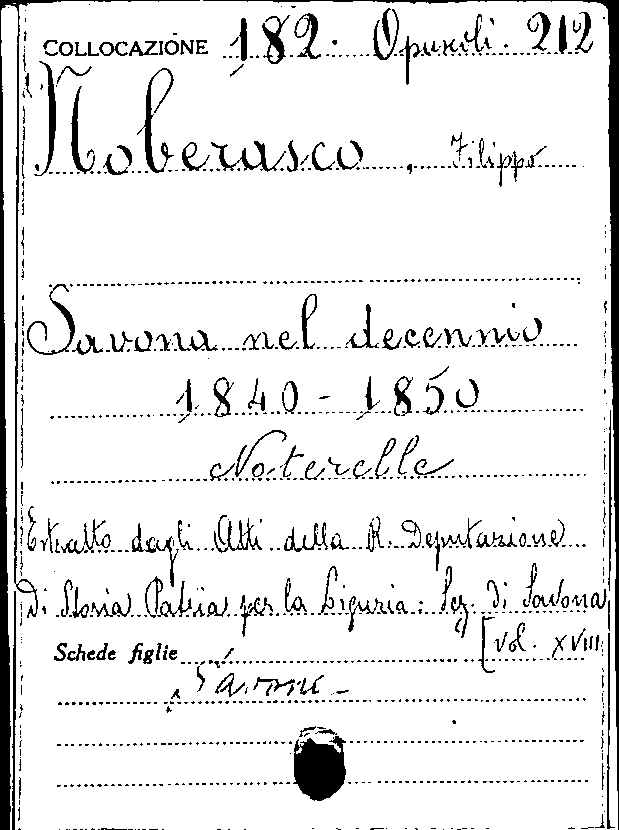 COLLOCAZIONE 182. Opuscoli. 212
Noberasco, Filippo
Savona nel decennio
1840 - 1850
Noterelle
Estratto dagli Atti della R. Deputazione
di Storia Patria per la Liguria: Sez. di Savona
[vol. XVIII
Schede figlie
Savona -